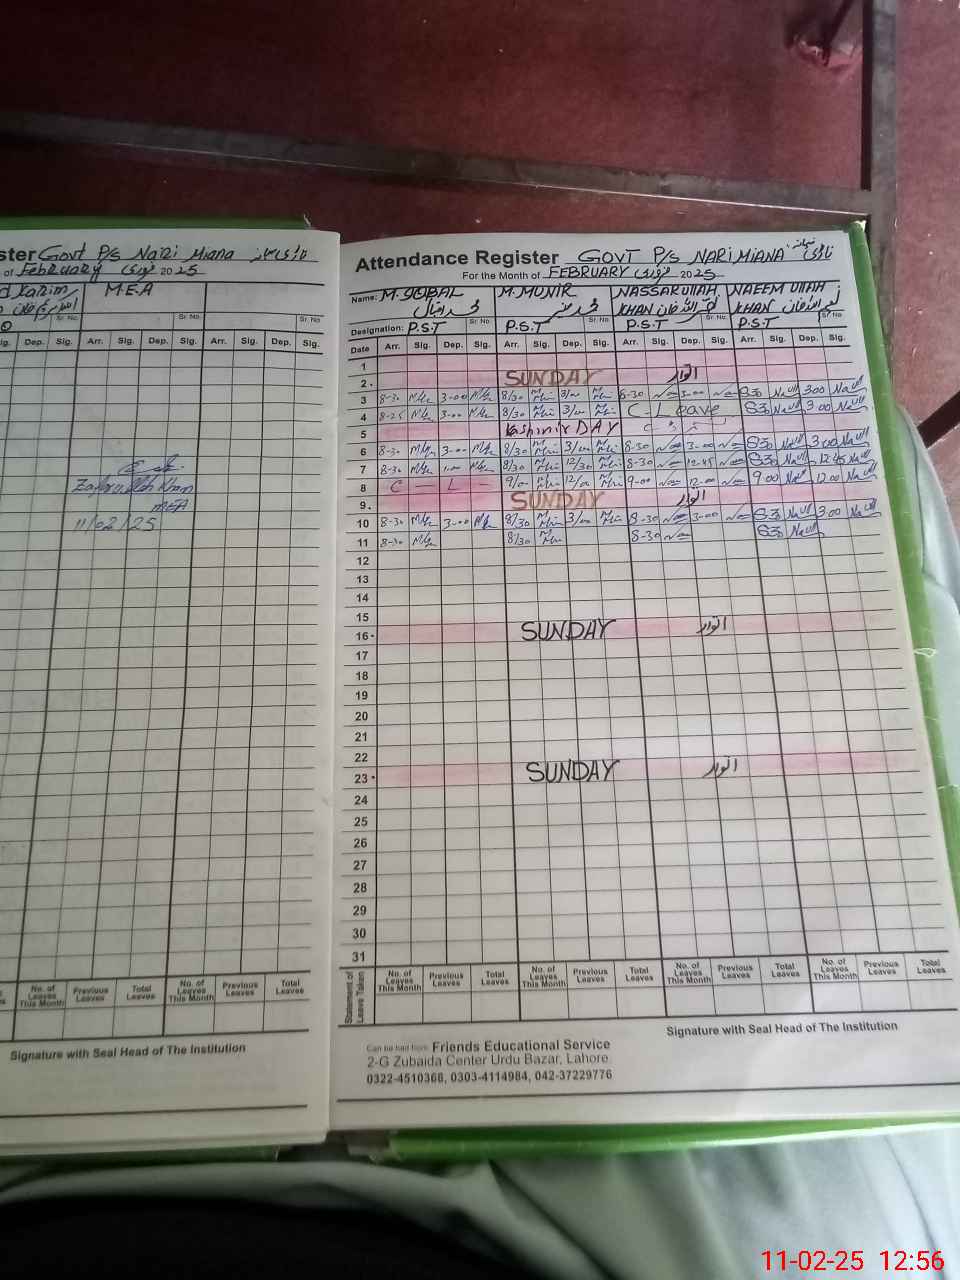 ster Govt P/s Nari Miana
of February فروری 2025
d Karim M.E.A
Sr. No. Sr. No Sr. No
ig. Dep. Sig. Arr. Sig. Dep. Sig. Arr. Sig. Dep. Sig.
Zafarullah Khan
MEA
11/02/25
No. of Leaves This Month Previous Leaves Total Leaves No. of Leaves This Month Previous Leaves Total Leaves
Signature with Seal Head of The Institution
Attendance Register GOVT P/s NARI MIANA
For the Month of FEBRUARY فروری 2025
Name: M. IQBAL M. MUNIR NASSARULLAH NAEEM ULLAH
محمد اقبال محمد منیر KHAN KHAN
Designation: P.S.T Sr. No. P.S.T Sr. No P.S.T Sr. No. P.S.T Sr. No.
Date Arr. Sig. Dep. Sig. Arr. Sig. Dep. Sig. Arr. Sig. Dep. Sig. Arr. Sig. Dep. Sig.
1
2. SUNDAY اتوار
3 8-30 3-00 8/30 3/00 8-30 3-00 8-30 3-00
4 8-25 3-00 8/30 3/00 C-Leave 8-30 3-00
5 Kashmir DAY
6 8-30 3-00 8/30 3/00 8-30 3-00 8-30 3-00
7 8-30 1-00 8/30 12/30 8-30 12-45 8-30 12-45
8 C - L - 9/00 12/00 9-00 12-00 9-00 12-00
9. SUNDAY اتوار
10 8-30 3-00 8/30 3/00 8-30 3-00 8-30 3-00
11 8-30 8/30 8-30 8-30
12
13
14
15
16. SUNDAY اتوار
17
18
19
20
21
22
23. SUNDAY اتوار
24
25
26
27
28
29
30
31
Statement of Leave Taken No. of Leaves This Month Previous Leaves Total Leaves No. of Leaves This Month Previous Leaves Total Leaves No. of Leaves This Month Previous Leaves Total Leaves No. of Leaves This Month Previous Leaves Total Leaves
Signature with Seal Head of The Institution
Can be had from: Friends Educational Service
2-G Zubaida Center Urdu Bazar, Lahore.
0322-4510368, 0303-4114984, 042-37229776
11-02-25 12:56